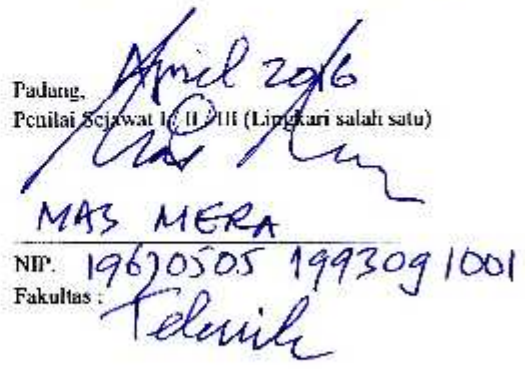 Padang, April 2016
Penilai Sejawat I / II / III (Lingkari salah satu)
MAS MERA
NIP. 19670505 199309 1001
Fakultas : Teknik